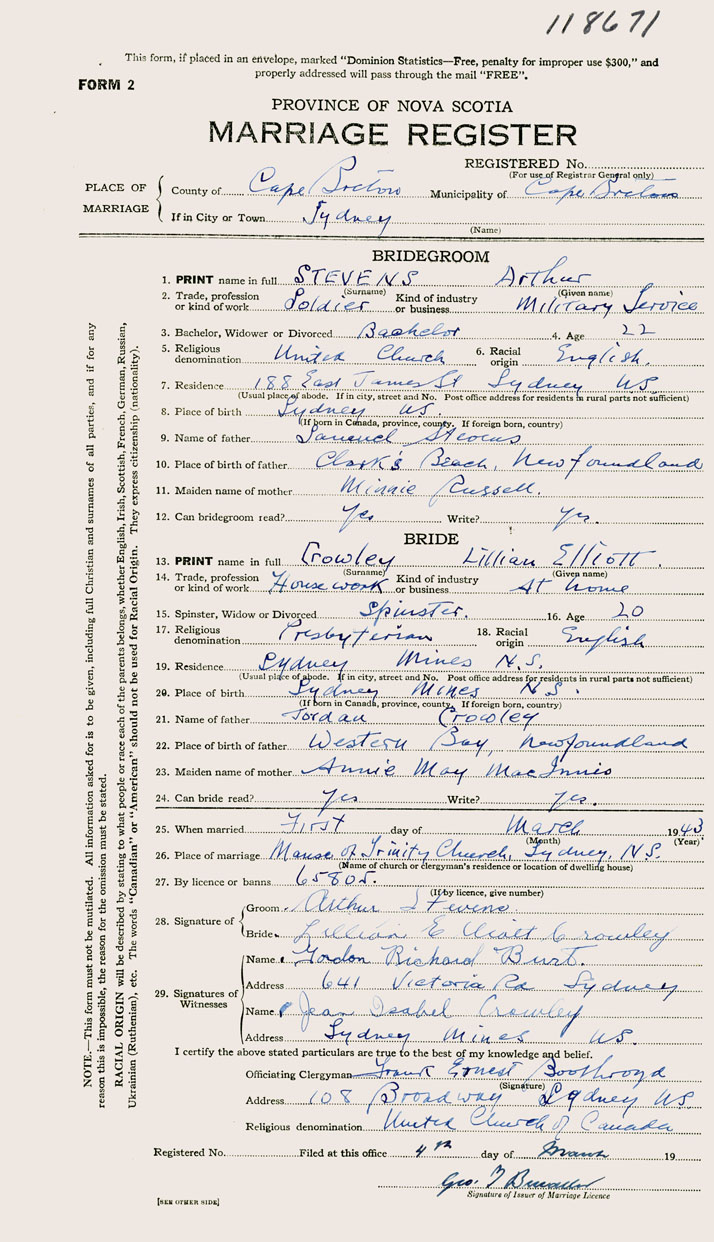 118671
This form, if placed in an envelope, marked "Dominion Statistics—Free, penalty for improper use $300," and
properly addressed will pass through the mail "FREE".
FORM 2
PROVINCE OF NOVA SCOTIA
MARRIAGE REGISTER
REGISTERED No.
(For use of Registrar General only)
PLACE OF MARRIAGE
County of Cape Breton Municipality of Cape Breton
If in City or Town Sydney
(Name)
BRIDEGROOM
1. PRINT name in full STEVENS Arthur
(Surname) (Given name)
2. Trade, profession or kind of work Soldier Kind of industry or business Military Service
3. Bachelor, Widower or Divorced Bachelor 4. Age 22
5. Religious denomination United Church 6. Racial origin English.
7. Residence 188 East James St Sydney NS.
(Usual place of abode. If in city, street and No. Post office address for residents in rural parts not sufficient)
8. Place of birth Sydney NS.
(If born in Canada, province, county. If foreign born, country)
9. Name of father Samuel Stevens
10. Place of birth of father Clark's Beach, Newfoundland
11. Maiden name of mother Minnie Russell.
12. Can bridegroom read? Yes Write? Yes.
BRIDE
13. PRINT name in full Crowley Lillian Elliott.
(Surname) (Given name)
14. Trade, profession or kind of work Housework Kind of industry or business At home
15. Spinster, Widow or Divorced Spinster. 16. Age 20
17. Religious denomination Presbyterian 18. Racial origin English
19. Residence Sydney Mines N.S.
(Usual place of abode. If in city, street and No. Post office address for residents in rural parts not sufficient)
20. Place of birth Sydney Mines N.S.
(If born in Canada, province, county. If foreign born, country)
21. Name of father Jordan Crowley
22. Place of birth of father Western Bay, Newfoundland
23. Maiden name of mother Annie May MacInnis
24. Can bride read? Yes Write? Yes.
25. When married First day of March 1943
(Month) (Year)
26. Place of marriage Manse of Trinity Church, Sydney, N.S.
(Name of church or clergyman's residence or location of dwelling house)
27. By licence or banns 65805.
(If by licence, give number)
28. Signature of
Groom Arthur Stevens
Bride Lillian Elliott Crowley
29. Signatures of Witnesses
Name Gordon Richard Burt.
Address 641 Victoria Rd Sydney
Name Jean Isabel Crowley
Address Sydney Mines NS.
I certify the above stated particulars are true to the best of my knowledge and belief.
Officiating Clergyman Frank Ernest Boothroyd
(Signature)
Address 108 Broadway Sydney NS.
Religious denomination United Church of Canada
Registered No. Filed at this office 4th day of March 19
Geo. T
Signature of Issuer of Marriage Licence
[SEE OTHER SIDE]
NOTE.—This form must not be mutilated. All information asked for is to be given, including full Christian and surnames of all parties, and if for any
reason this is impossible, the reason for the omission must be stated.
RACIAL ORIGIN will be described by stating to what people or race each of the parents belongs, whether English, Irish, Scottish, French, German, Russian,
Ukrainian (Ruthenian), etc. The words "Canadian" or "American" should not be used for Racial Origin. They express citizenship (nationality).